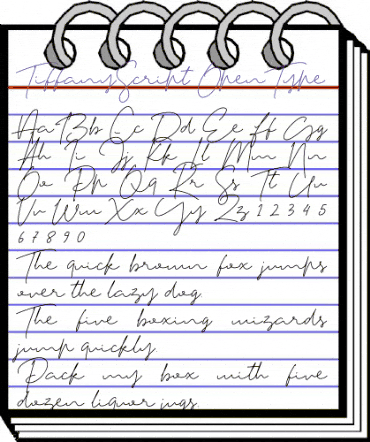 TiffanyScript OpenType
Aa Bb Cc Dd Ee Ff Gg
Hh Ii Jj Kk Ll Mm Nn
Oo Pp Qq Rr Ss Tt Uu
Vv Ww Xx Yy Zz 1 2 3 4 5
6 7 8 9 0
The quick brown fox jumps
over the lazy dog.
The five boxing wizards
jump quickly.
Pack my box with five
dozen liquor jugs.